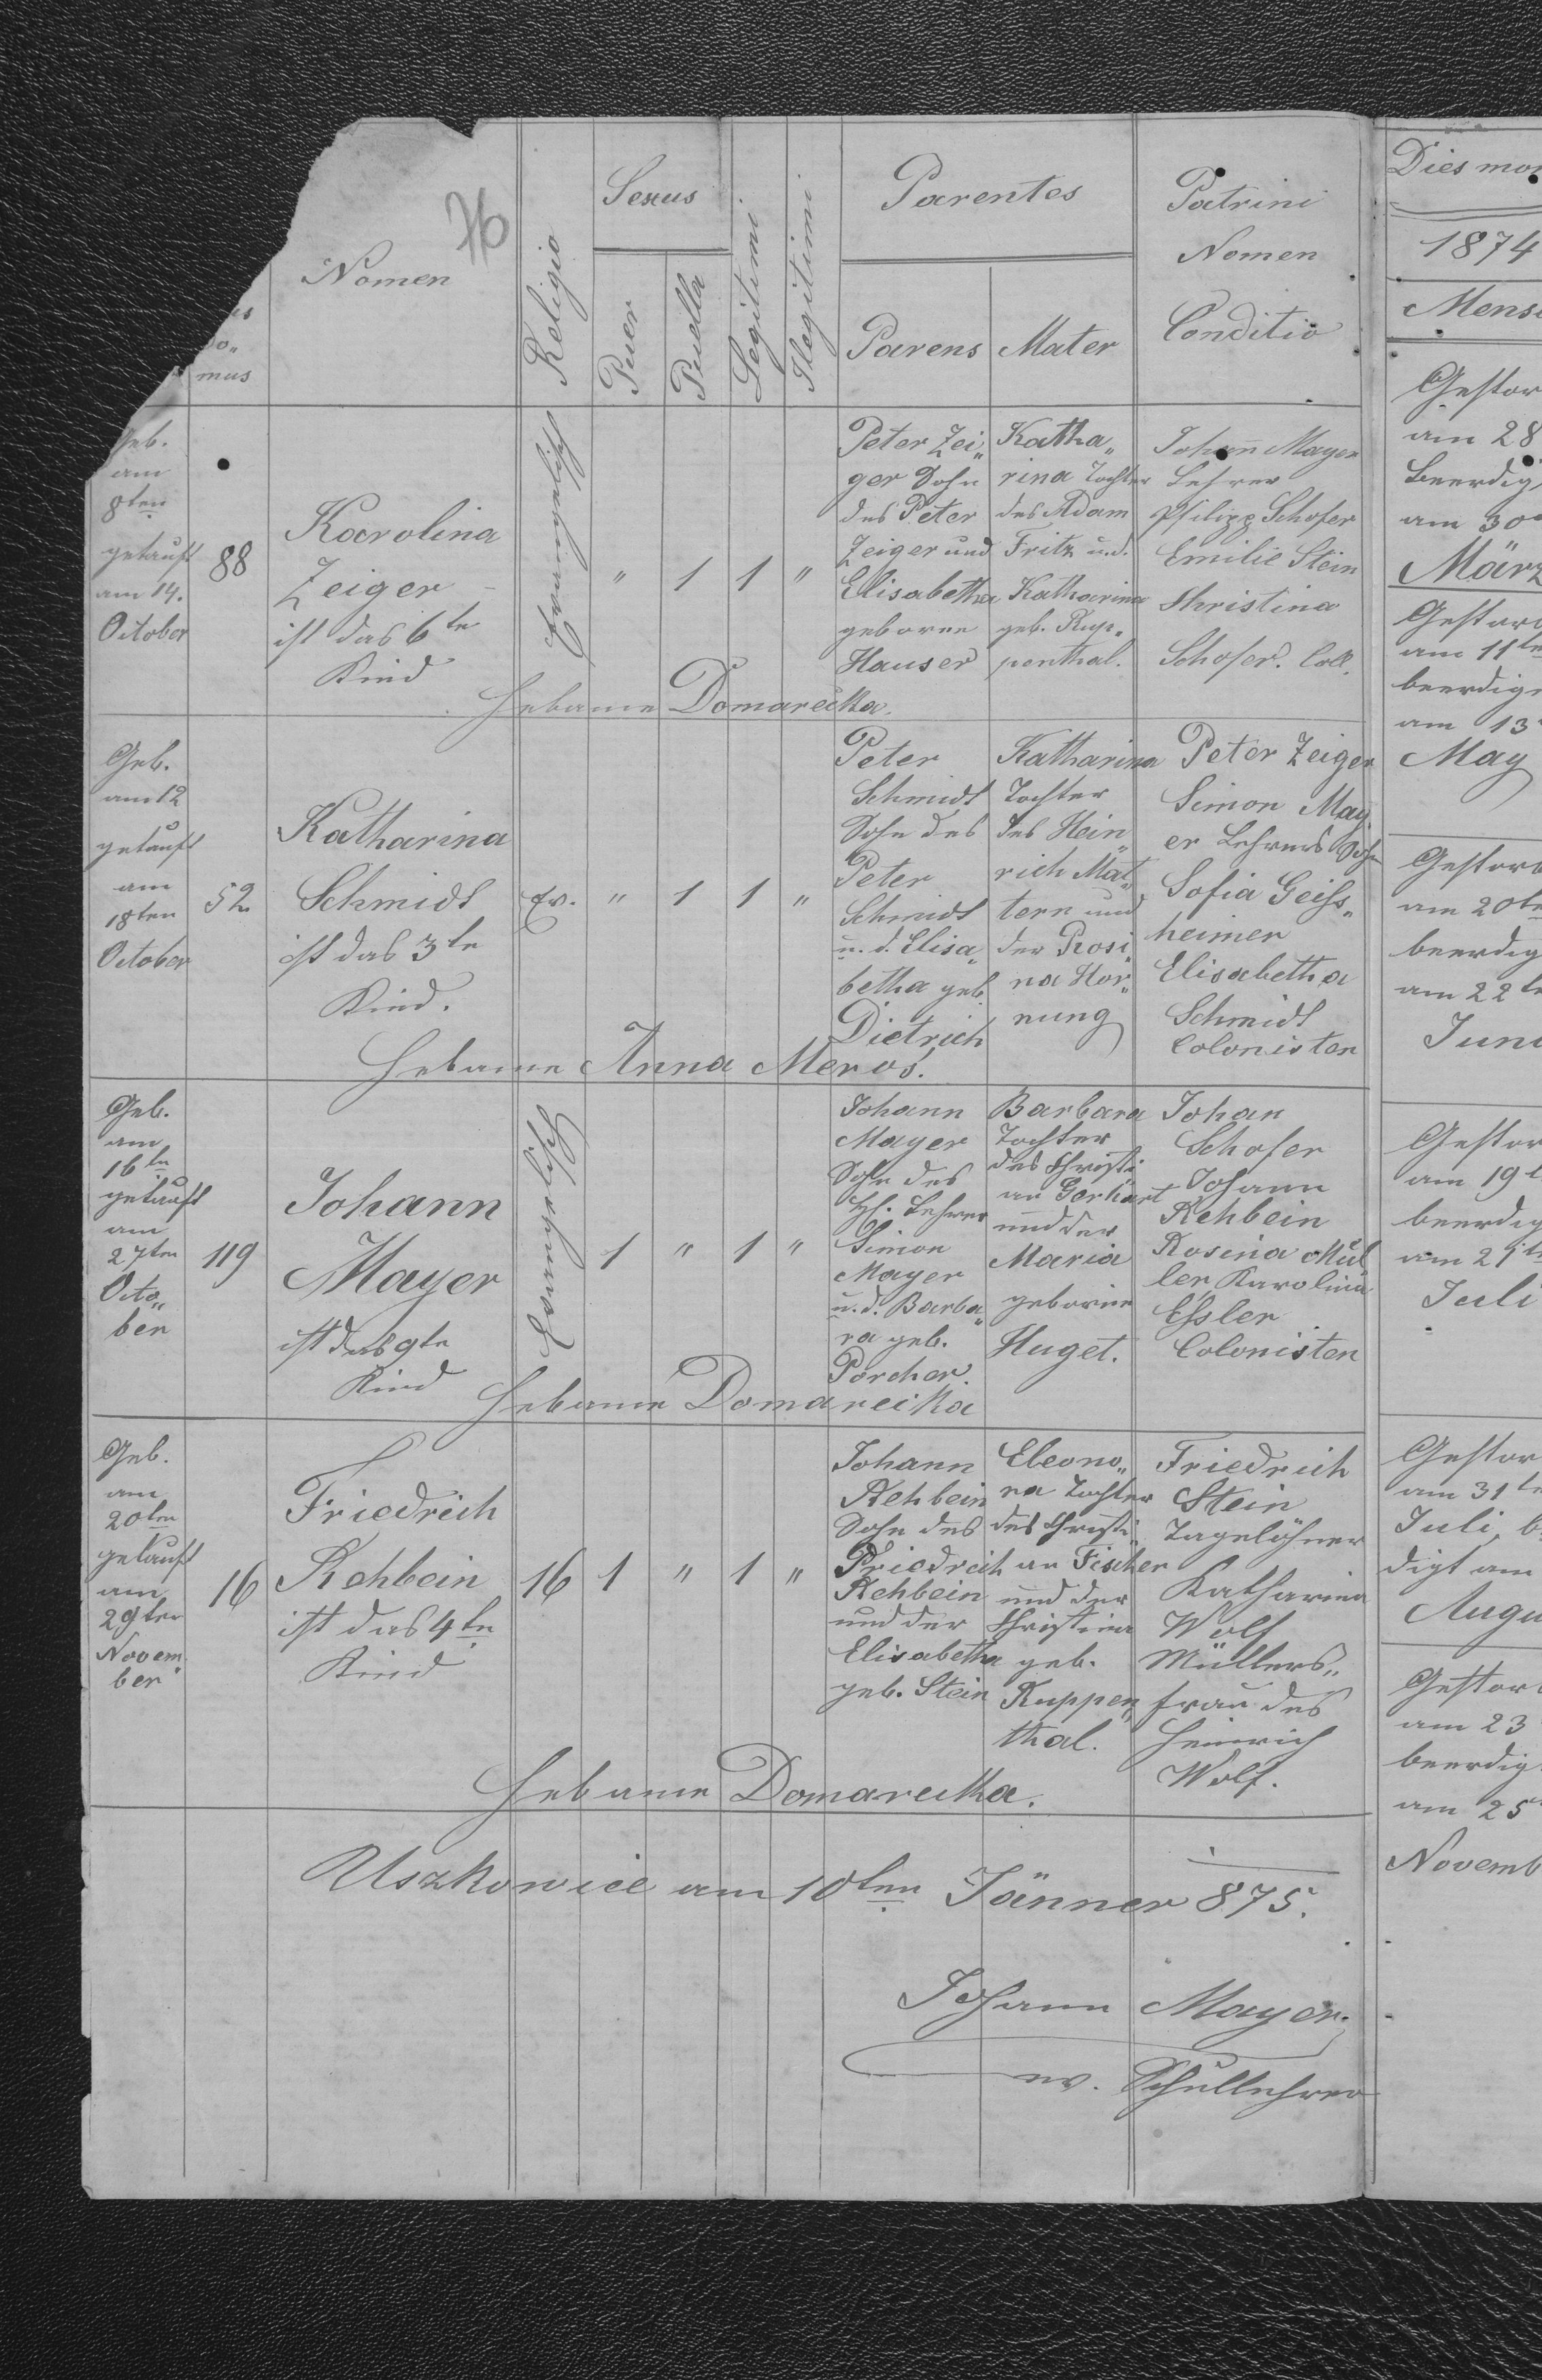 76
Nomen
mus
Religio
Sexus
Puer
Puella
Legitimi
Ilegitimi
Parentes
Parens
Mater
Patrini
Nomen
Conditio
Geb.
am
8ten
getauft
am 14.
October
88
Karolina
Zeiger
ist das 6te
Kind
Evangelisch
" 1 1 "
Peter Zei„
ger Sohn
des Peter
Zeiger und
Elisabetha
geborne
Hauser
Katha„
rina Tochter
des Adam
Fritz u.d.
Katharina
geb. Kup„
penthal.
Johann Mayer
Lehrer
Philipp Schofer
Emilie Stein
Christina
Schofer. Coll.
Hebame Domarecka.
Geb.
am 12
getauft
am
18ten
October
52
Katharina
Schmidt
ist das 3te
Kind.
Ev.
" 1 1 "
Peter
Schmidt
Sohn des
Peter
Schmidt
u. d. Elisa„
betha geb.
Dietrich
Katharina
Tochter
des Hein„
rich Mat„
tern und
der Rosi„
na Hor„
nung
Peter Zeiger
Simon May„
er Lehrers Sohn
Sofia Geiss„
heimer
Elisabetha
Schmidt
Colonisten
Hebame Anna Meros.
Geb.
am
16ten
getauft
am
27ten
Octo„
ber
119
Johann
Mayer
ist das 9te
Kind
Evangelisch
1 " 1 "
Johann
Mayer
Sohn des
Lehrer
Simon
Mayer
u. d. Barba„
ra geb.
Porcher.
Barbara
Tochter
des Christi„
an Gerhart
und der
Maria
geborine
Huget.
Johan
Schofer
Johann
Rehbein
Rosina Mül„
ler Karolina
Essler
Colonisten
Hebame Domarecka
Geb.
am
20ten
getauft
am
29ten
Novem„
ber
16
Friedrich
Rehbein
ist das 4te
Kind
16
1 " 1 "
Johann
Rehbein
Sohn des
Friedreich
Rehbein
und der
Elisabetha
geb. Stein
Eleono„
ra Tochter
des Christi„
an Fischer
und der
Christina
geb.
Kuppen„
thal.
Friedrich
Stein
Tagelöhner
Katharina
Wolf
Müllers„
frau des
Heinrich
Wolf.
Hebame Domarecka.
Uszkowice am 10ten Jänner 875.
Johann Mayer.
ev. Schullehrer
Dies mor
1874
Mens
Gestor
am 28
Beerdig
am 30
März
Gestor
am 11te
beerdig
am 13
May
Gestorb
am 20te
beerdig
am 22te
Juni
Gestor
am 19t
beerdig
am 21te
Juli
Gestor
am 31te
Juli, b
digt am
Augu
Gestorb
am 23
beerdig
am 25
Novemb